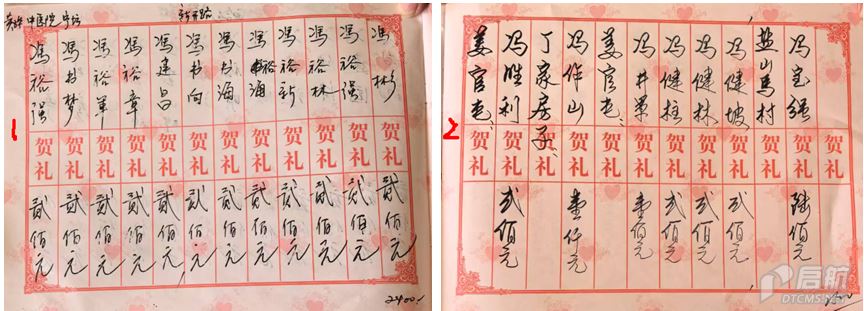 1
新开路
冯彬 贺礼 贰佰元
冯裕强 贺礼 贰佰元
冯裕林 贺礼 贰佰元
冯裕新 贺礼 贰佰元
冯裕海 贺礼 贰佰元
冯书海 贺礼 贰佰元
冯书向 贺礼 贰佰元
冯建昌 贺礼 贰佰元
冯裕章 贺礼 贰佰元
冯裕革 贺礼 贰佰元
冯书梦 贺礼 贰佰元
冯裕强 贺礼 贰佰元
中医院
2400
2
冯宝强 贺礼 陆佰元
盐山马村 贺礼
冯健坡 贺礼 弍佰元
冯健林 贺礼 弍佰元
冯健柱 贺礼 弍佰元
冯井革 贺礼 壹佰元
姜官屯 贺礼
冯作山 贺礼 壹仟元
丁家房子 贺礼
冯胜利 贺礼 弍佰元
姜官屯 贺礼
启航
DTCMS.NET